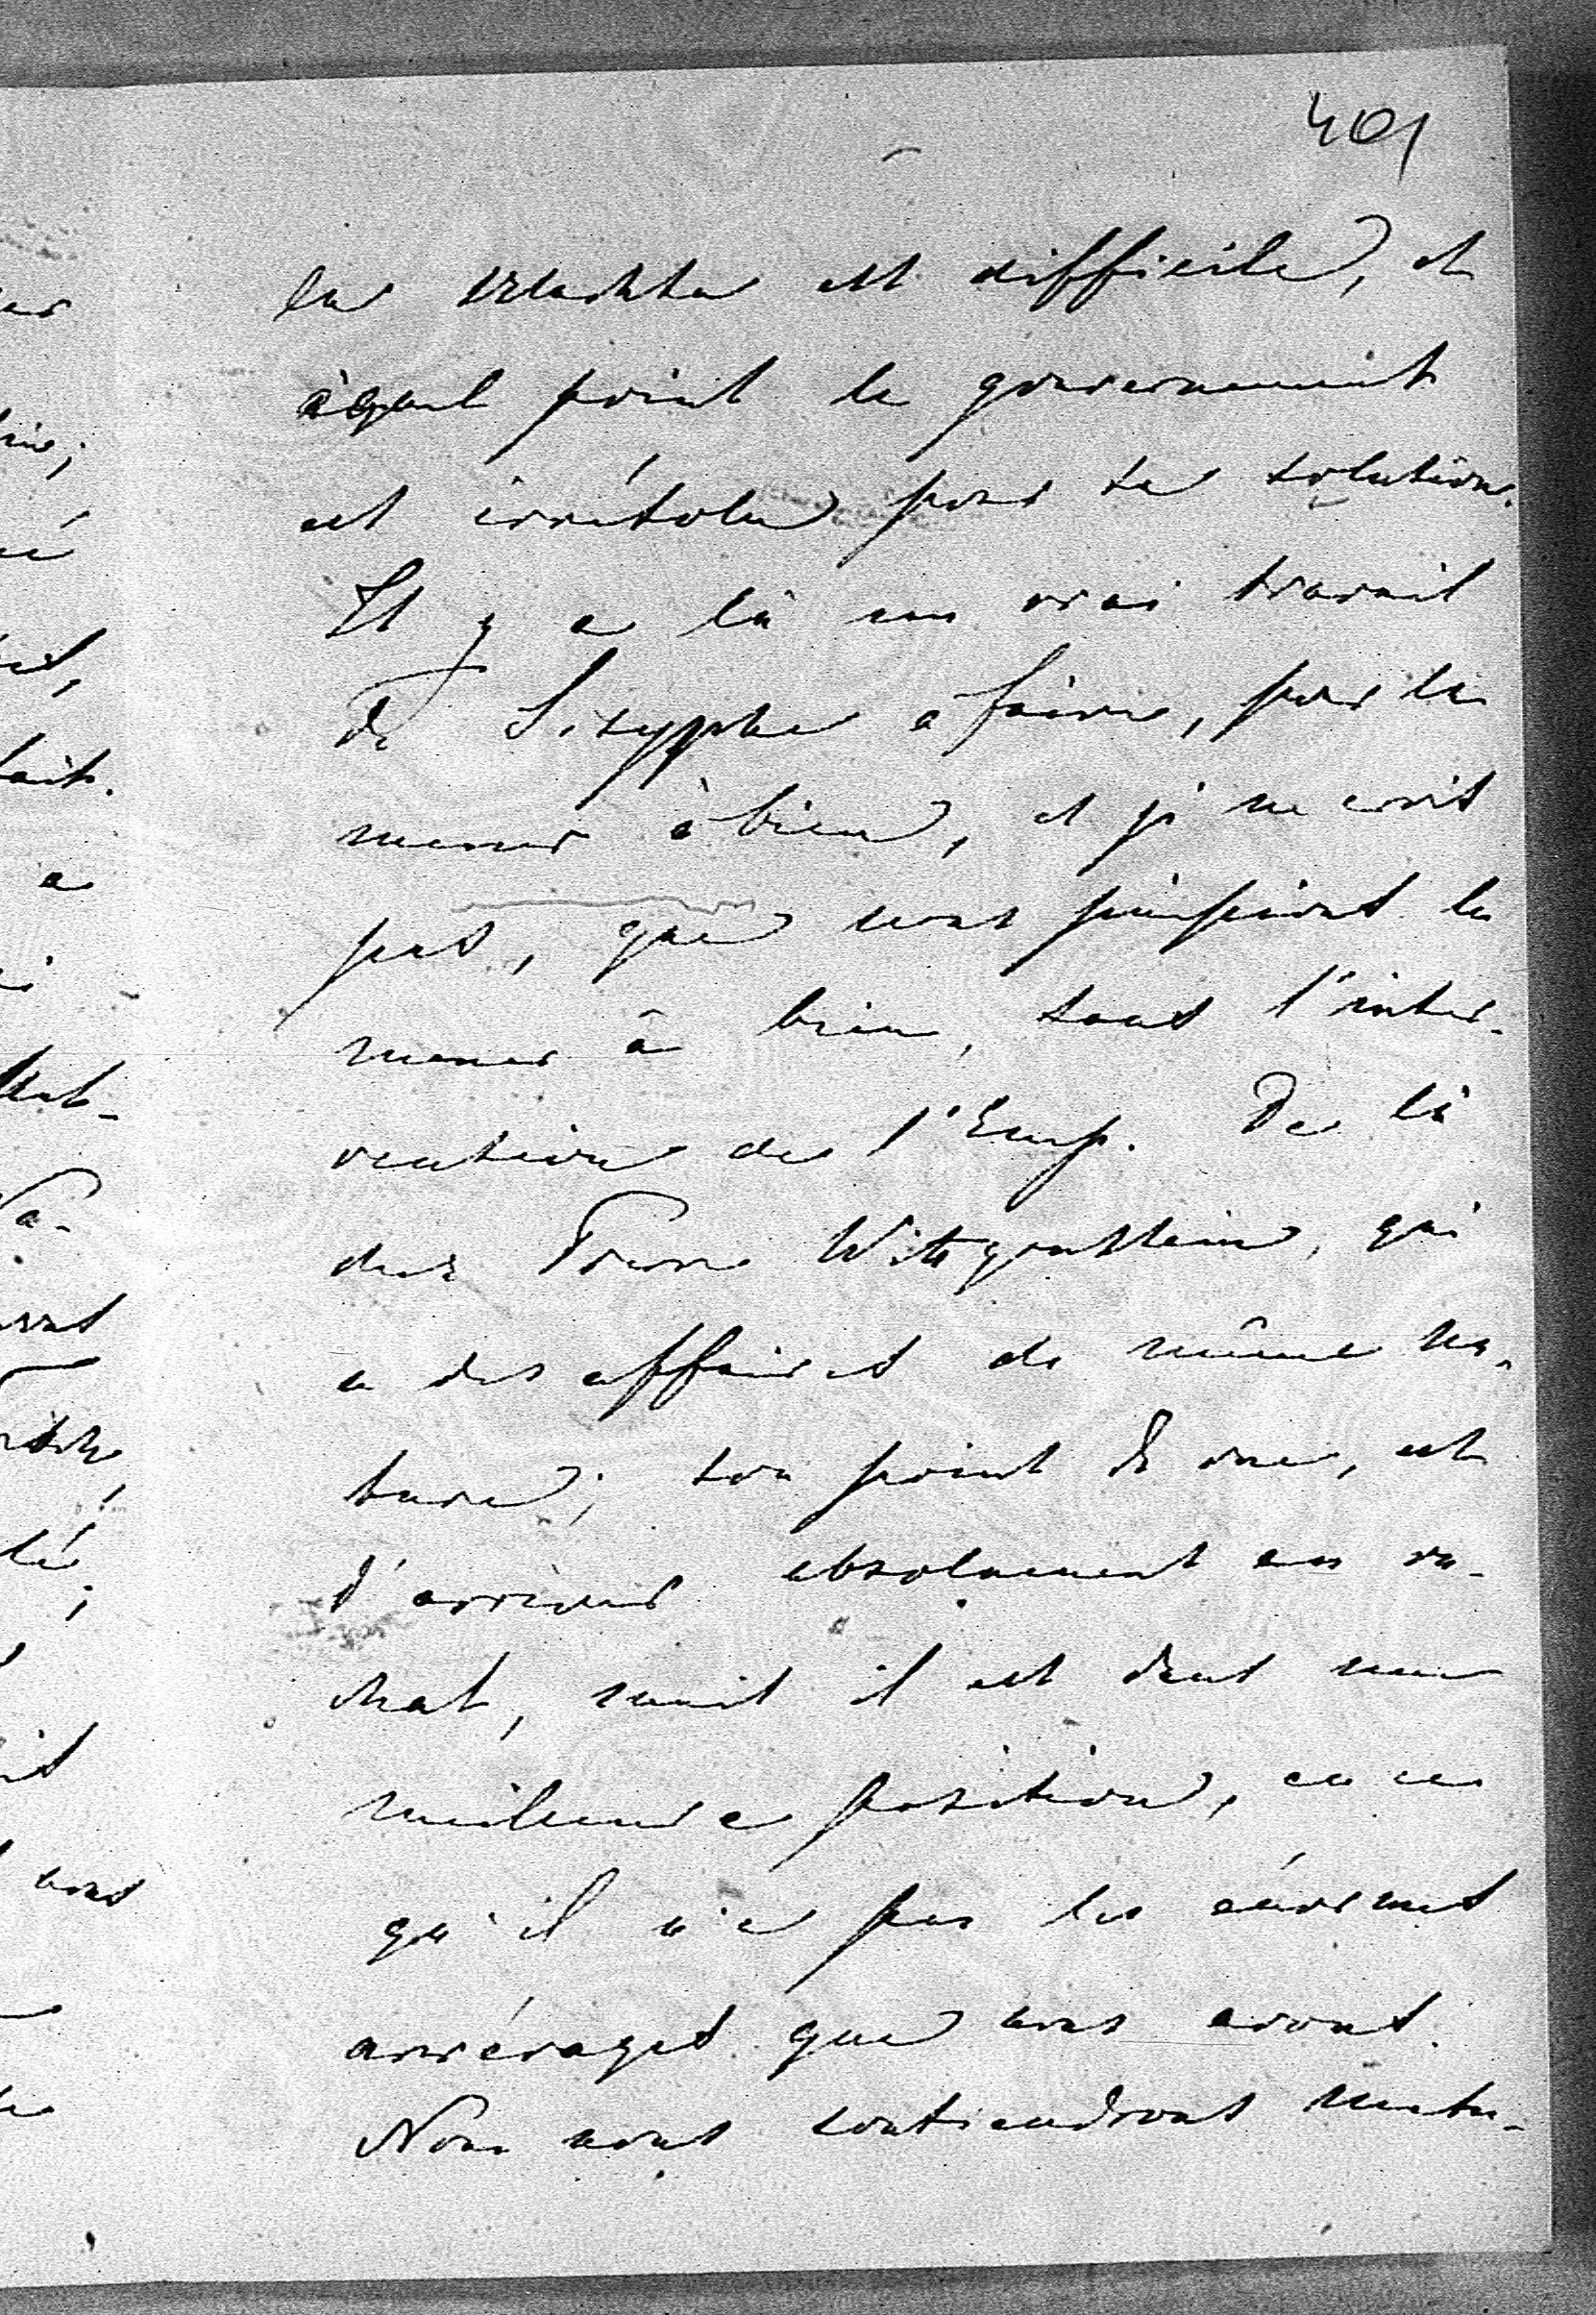 401
la est difficile, et
à quel point le gouvernement
est irrésolu pour sa solution.
Il y a là un vrai travail
de Sisyphe a faire, pour la
mener à bien, et je ne crois
pas, que nous puissions la
mener à bien, sans l'inter-
vention de l'Emp. De là
chez Pierre Wittgenstein, qui
a des affaires de même na-
ture; son point de vue, est
d'arriver absolument au ra-
chat, mais il est dans une
meilleure position, en ce
qu'il n'a pas les énormes
arrérages que nous avons.
Nous nous soutiendrons mutu-